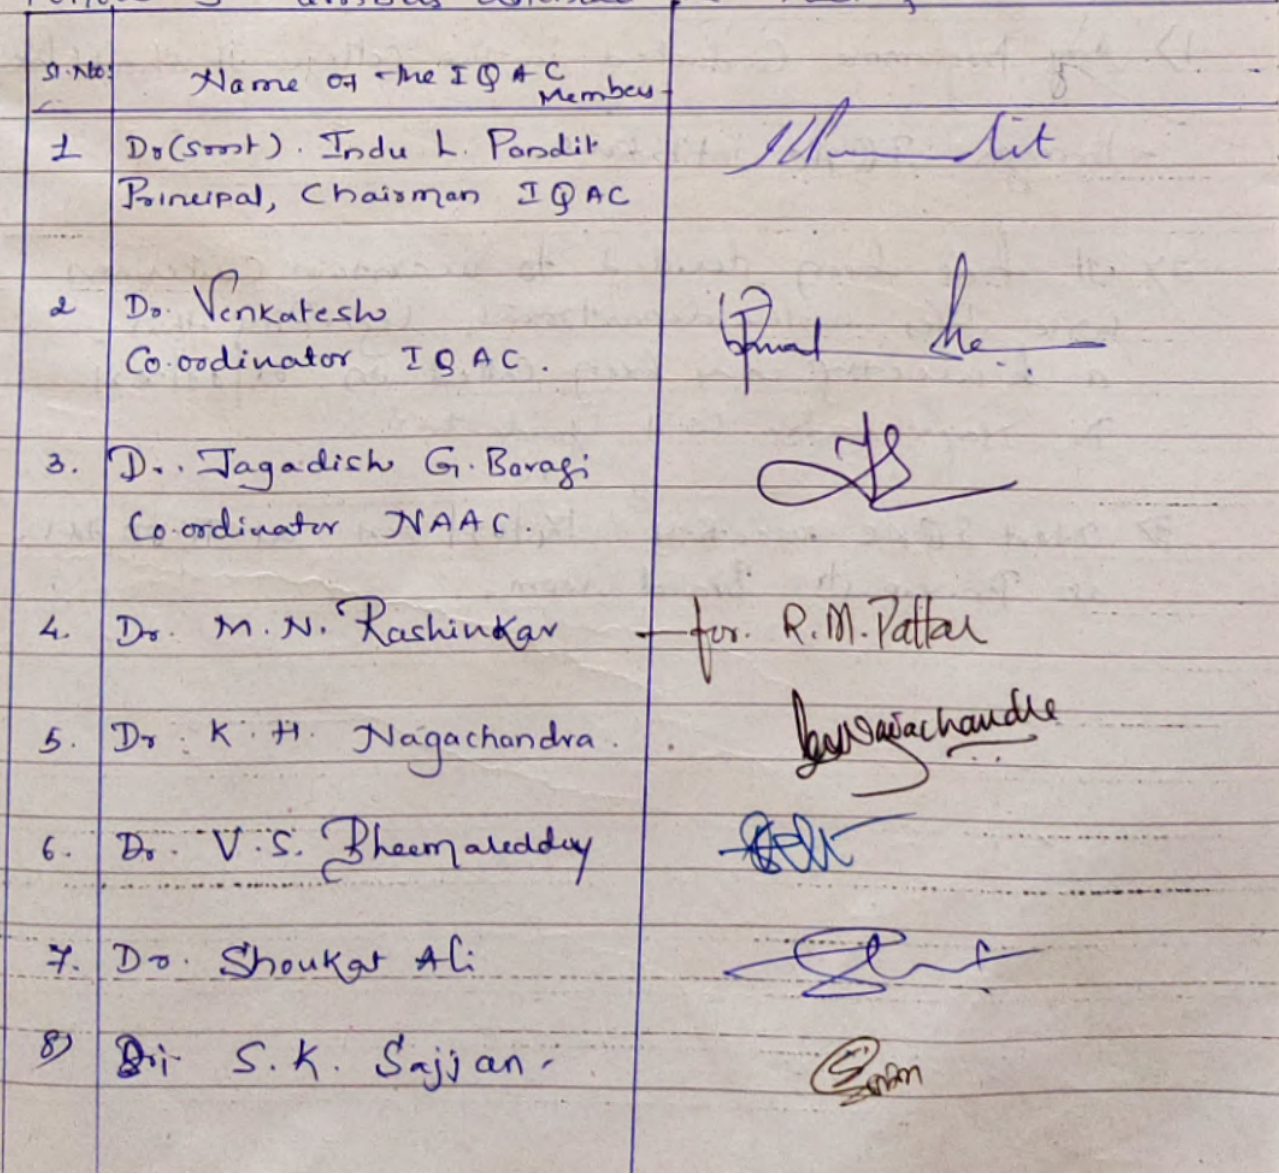 Sl.No. Name of the IQAC Members
1 Dr(Smt). Indu L. Pandit
Principal, Chairman IQAC
2 Dr. Venkatesh
Co.ordinator IQAC.
3. Dr. Jagadish G. Baragi
Co.ordinator NAAC.
4. Dr. M. N. Rashinkar for. R.M. Pattar
5. Dr. K. H. Nagachandra. Nagachandra
6. Dr. V. S. Bheemareddy
7. Dr. Shoukat Ali
8) Sri S. K. Sajjan.